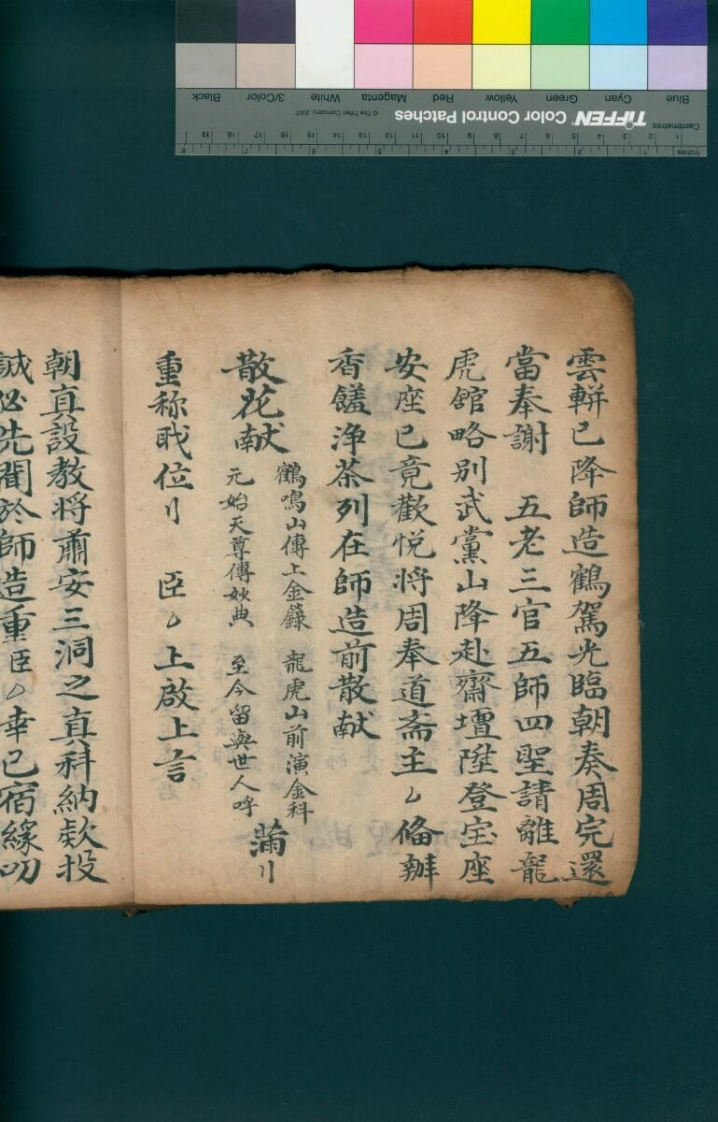 雲軿已降師造鶴駕光臨朝奏周完還
當奉謝　五老三官五師四聖請離龍
虎舘略別武黨山降赴齋壇陞登宝座
安座已竟歡悅將周奉道斋主ㄥ俻辦
香饈浄茶列在師造前散献
散花献
鶴鳴山傳上金籙　龍虎山前演金科
元始天尊傳妙典　至今留與世人呼
蒲刂
重称戝位刂　臣ㄥ上啟上言
朝真設教将肅安三洞之真科納欵投
誠必先聞於師造重臣ㄥ幸已宿緣叨
Inches
Centimetres
TIFFEN Color Control Patches
© The Tiffen Company, 2007
Blue
Cyan
Green
Yellow
Red
Magenta
White
3/Color
Black